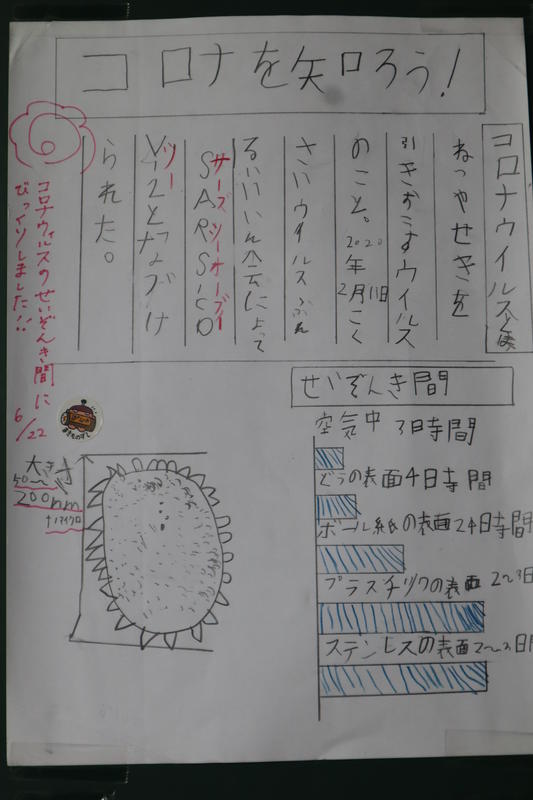 コロナを知ろう!
コロナウイルスとは
ねつやせきを
引きおこすウイルス
のこと。2020年2月11日こく
さいウイルスぶん
るいいいん会によって
サーズ ツーオーブイ
SARS-CO
ツー
V-2となづけ
られた。
6
コロナウィルスのせいぞんき間に
びっくりしました!!
6/22
せいぞんき間
空気中 3時間
どうの表面4時間
ボール紙の表面24時間
プラスチックの表面 2〜3日
ステンレスの表面2〜3日間
大きさ
50〜
200nm